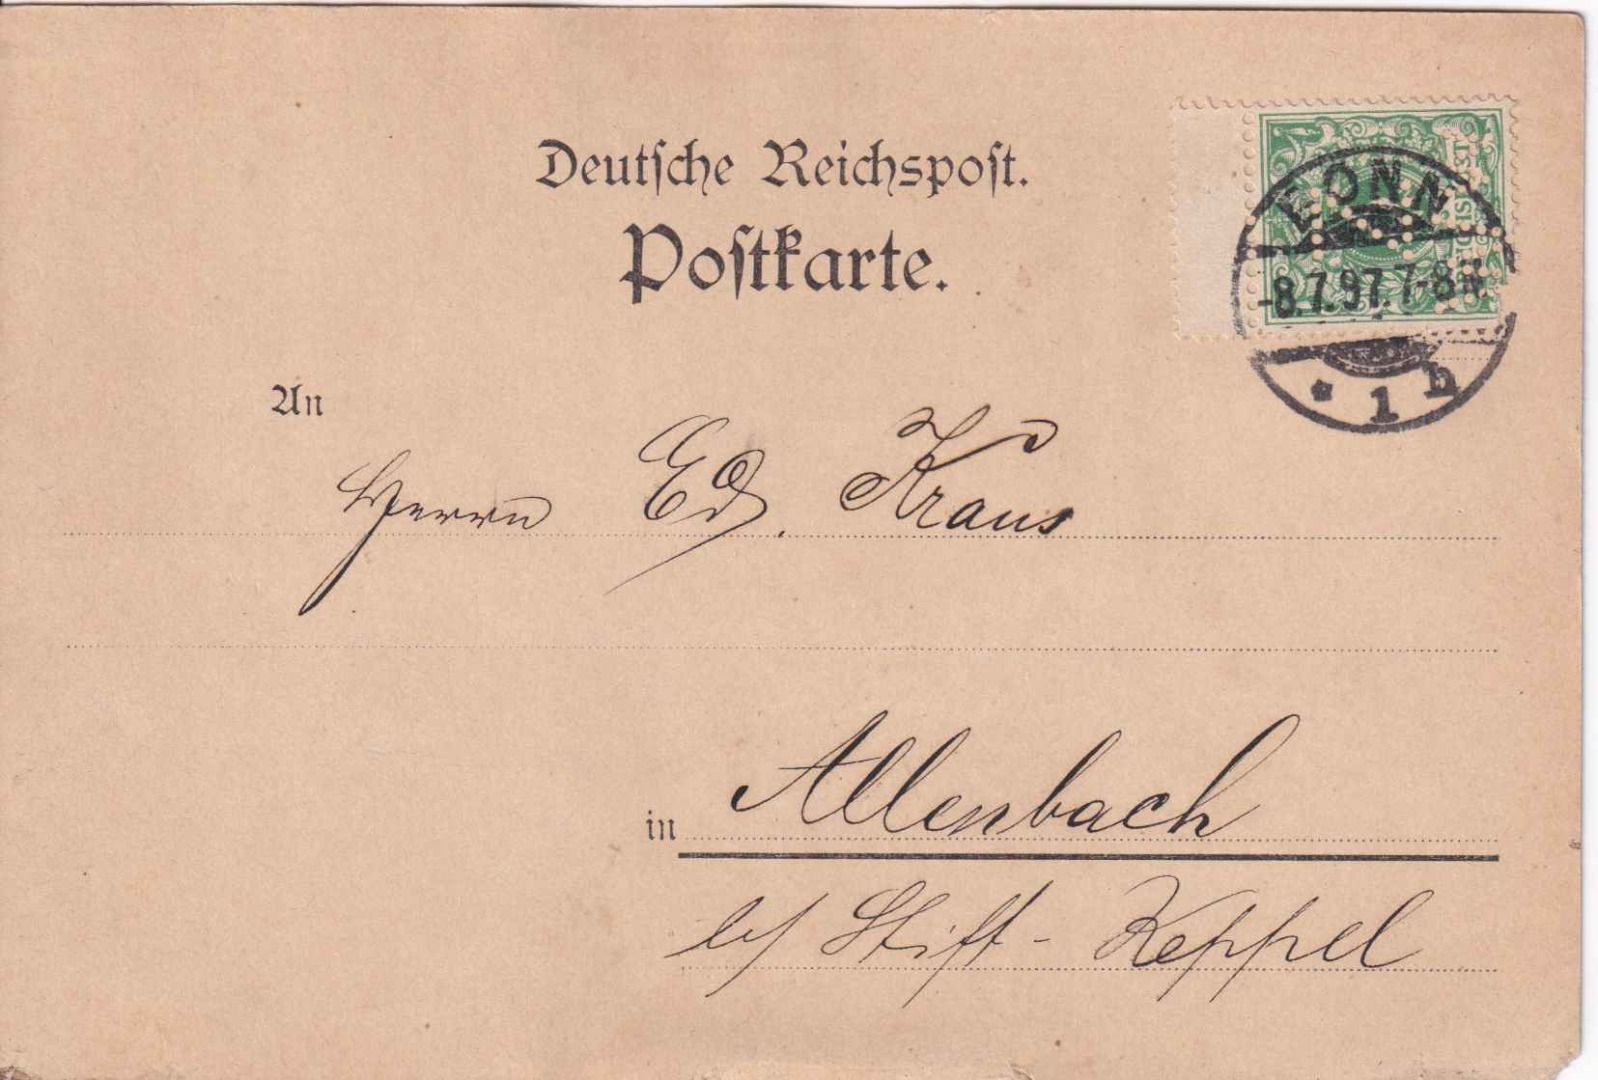 Deutsche Reichspost.
Postkarte.
BONN
-8.7.97.7-8N.
* 1 b
An
Herrn Ed. Kraus
in Allenbach
b/ Stift-Keppel